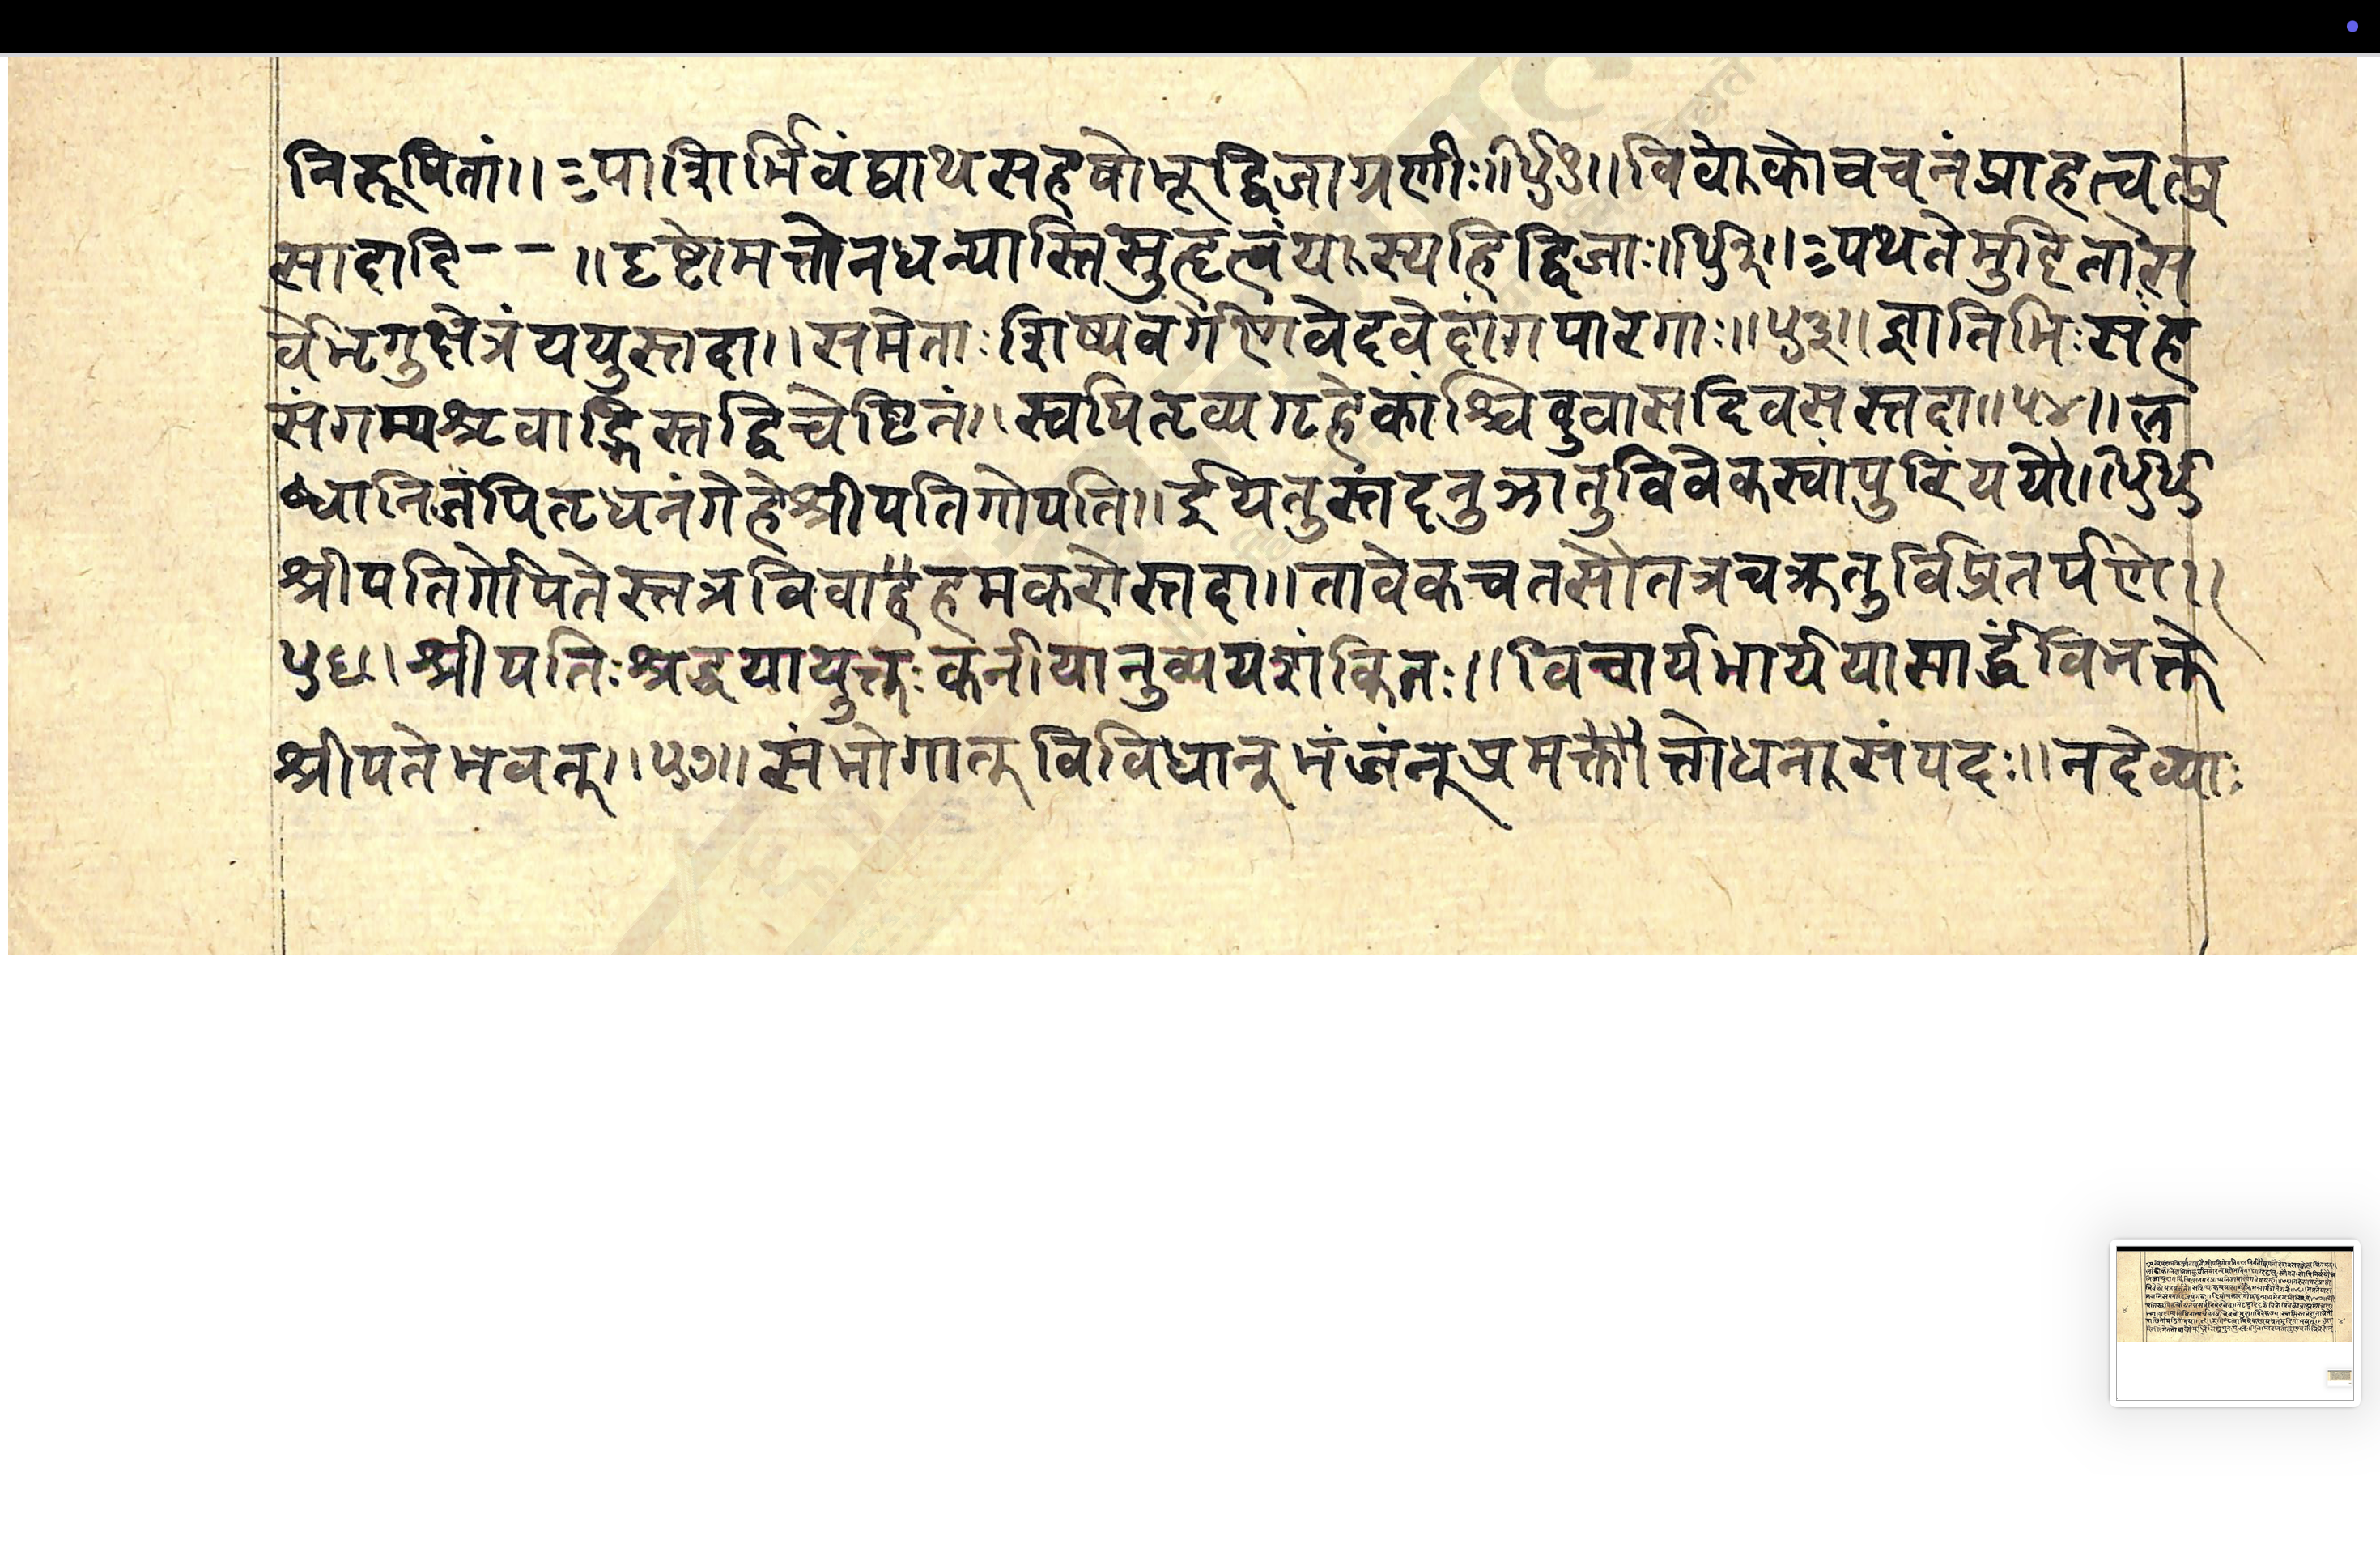 निरूपितां।। ऽपाशिर्भिवंद्याथसहर्षोभूद्विजाग्रणीः।।५१।।विवेकोवचनंप्राहत्वत्प्र
सादाद्दि-- ।।दृष्टोमत्तोनधन्यास्तिसुहृत्वंयास्यहिद्विजाः।।५२।।ऽपथतेमुदितास
र्वेभृगुक्षेत्रंययुस्तदा।।समेताःशिष्यवर्गेणवेदवेदांगपारगाः।।५३।।ज्ञातिभिःसह
संगम्यश्रवाद्भिस्तद्विचेष्टितं।।स्वपितृव्यगृहेकांश्चिदुवासदिवसस्तदा।।५४।।ल
ब्धानिजंपितृधनंगेहेश्रीपतिगोपति।।ईयतुस्तंदनुज्ञातुविवेकस्वांपुरिंययौ।।५५
श्रीपतिगोपितेस्तत्रविवाहंहमकरोस्तदा।।तावेकचतसौतत्रचक्रतुर्विप्रतर्पणे।।
५६।श्रीपतिःश्रद्धयायुक्तःकनीयानुव्ययशंकितः।।विचार्यभार्ययासार्द्धंविभक्ते
श्रीपतेभवत्।।५७।।संभोगान्विविधान्भंजंन्प्रमत्तौत्तोधनसंपदः।।नदेव्याः